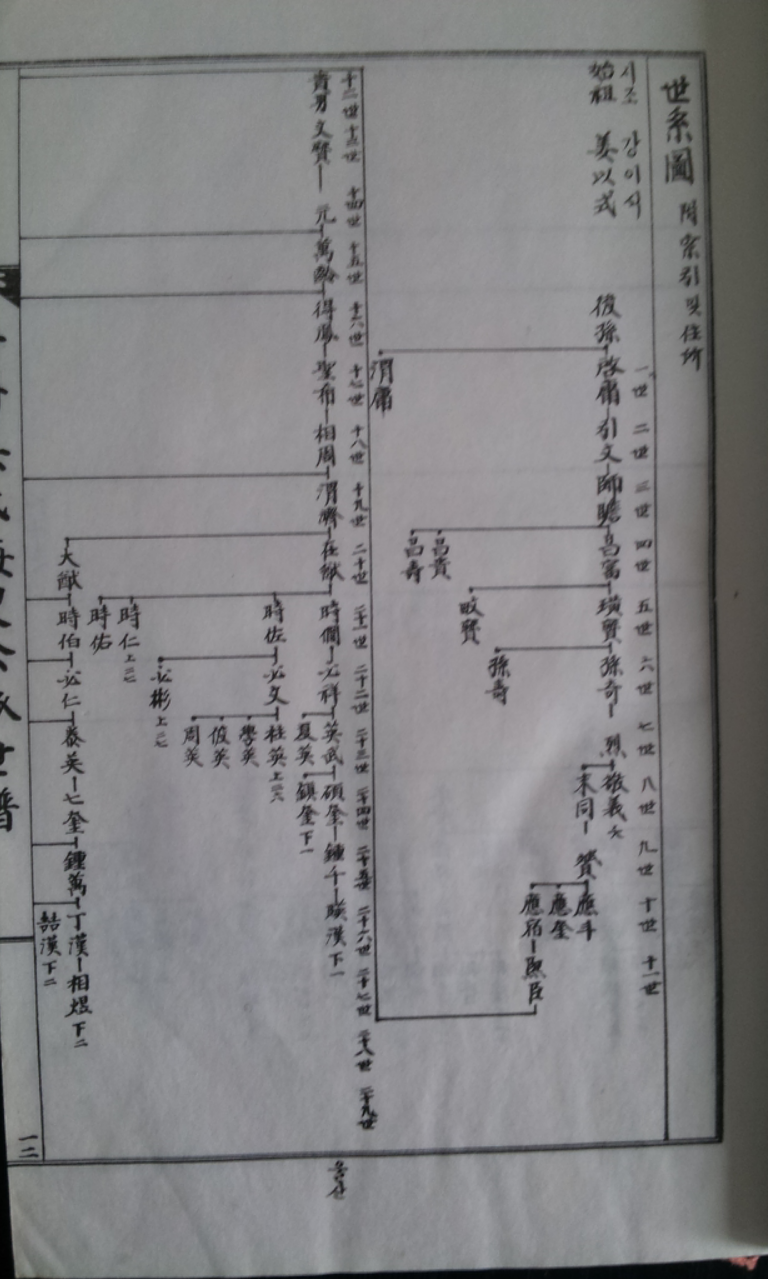 世系圖 附索引 및 住所
시조 강이식
始祖 姜以式
一世 二世 三世 四世 五世 六世 七世 八世 九世 十世 十一世
後孫 啓庸 引文 師瞻 昌富 璜寶 孫奇 烈 敬義
末同 贊 應斗
應奎
應宿 熙臣
孫壽
昌貴
昌壽
渭庸
十二世 十三世 十四世 十五世 十六世 十七世 十八世 十九世 二十世 二十一世 二十二世 二十三世 二十四世 二十五世 二十六世 二十七世 二十八世 二十九世
貴男 文賢 元 萬齡 得鳳 聖希 相周 渭濟 在猷 時僩 必祥 英武 碩奎 鍾千 漢下一
夏英 鎭奎下一
時佐 必文 桂英上二六
學英
俊英
周英
必彬上二七
時仁
時佑
大猷 時伯 必仁 泰英 七奎 鍾萬 丁漢 相煜下二
喆漢下二
一二
웅산